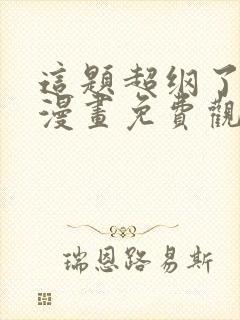 這題超纲了
漫畫免費觀
瑞恩路易斯